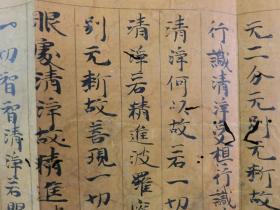 元二分元別元断故
行識清淨受想行識
清淨何以故若一切
清淨若精進波羅蜜
別元断故善現一切
眼處清淨故精進
一切智智清淨若眼